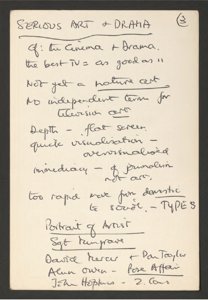 SERIOUS ART & DRAMA
3
Cf: the Cinema & Drama.
the best TV = as good as "
Not yet a mature art
No independent term for
television art
Depth - flat screen
quick visualisation -
overvisualised
immediacy - of journalism
not art.
too rapid move from domestic
to social. - TYPES
Portrait of Artist
Sgt Musgrave
David Mercer & Don Taylor
Alun Owen - Rose Affair
John Hopkins - Z. Cars